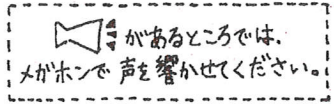 があるところでは、
メガホンで声を響かせてください。